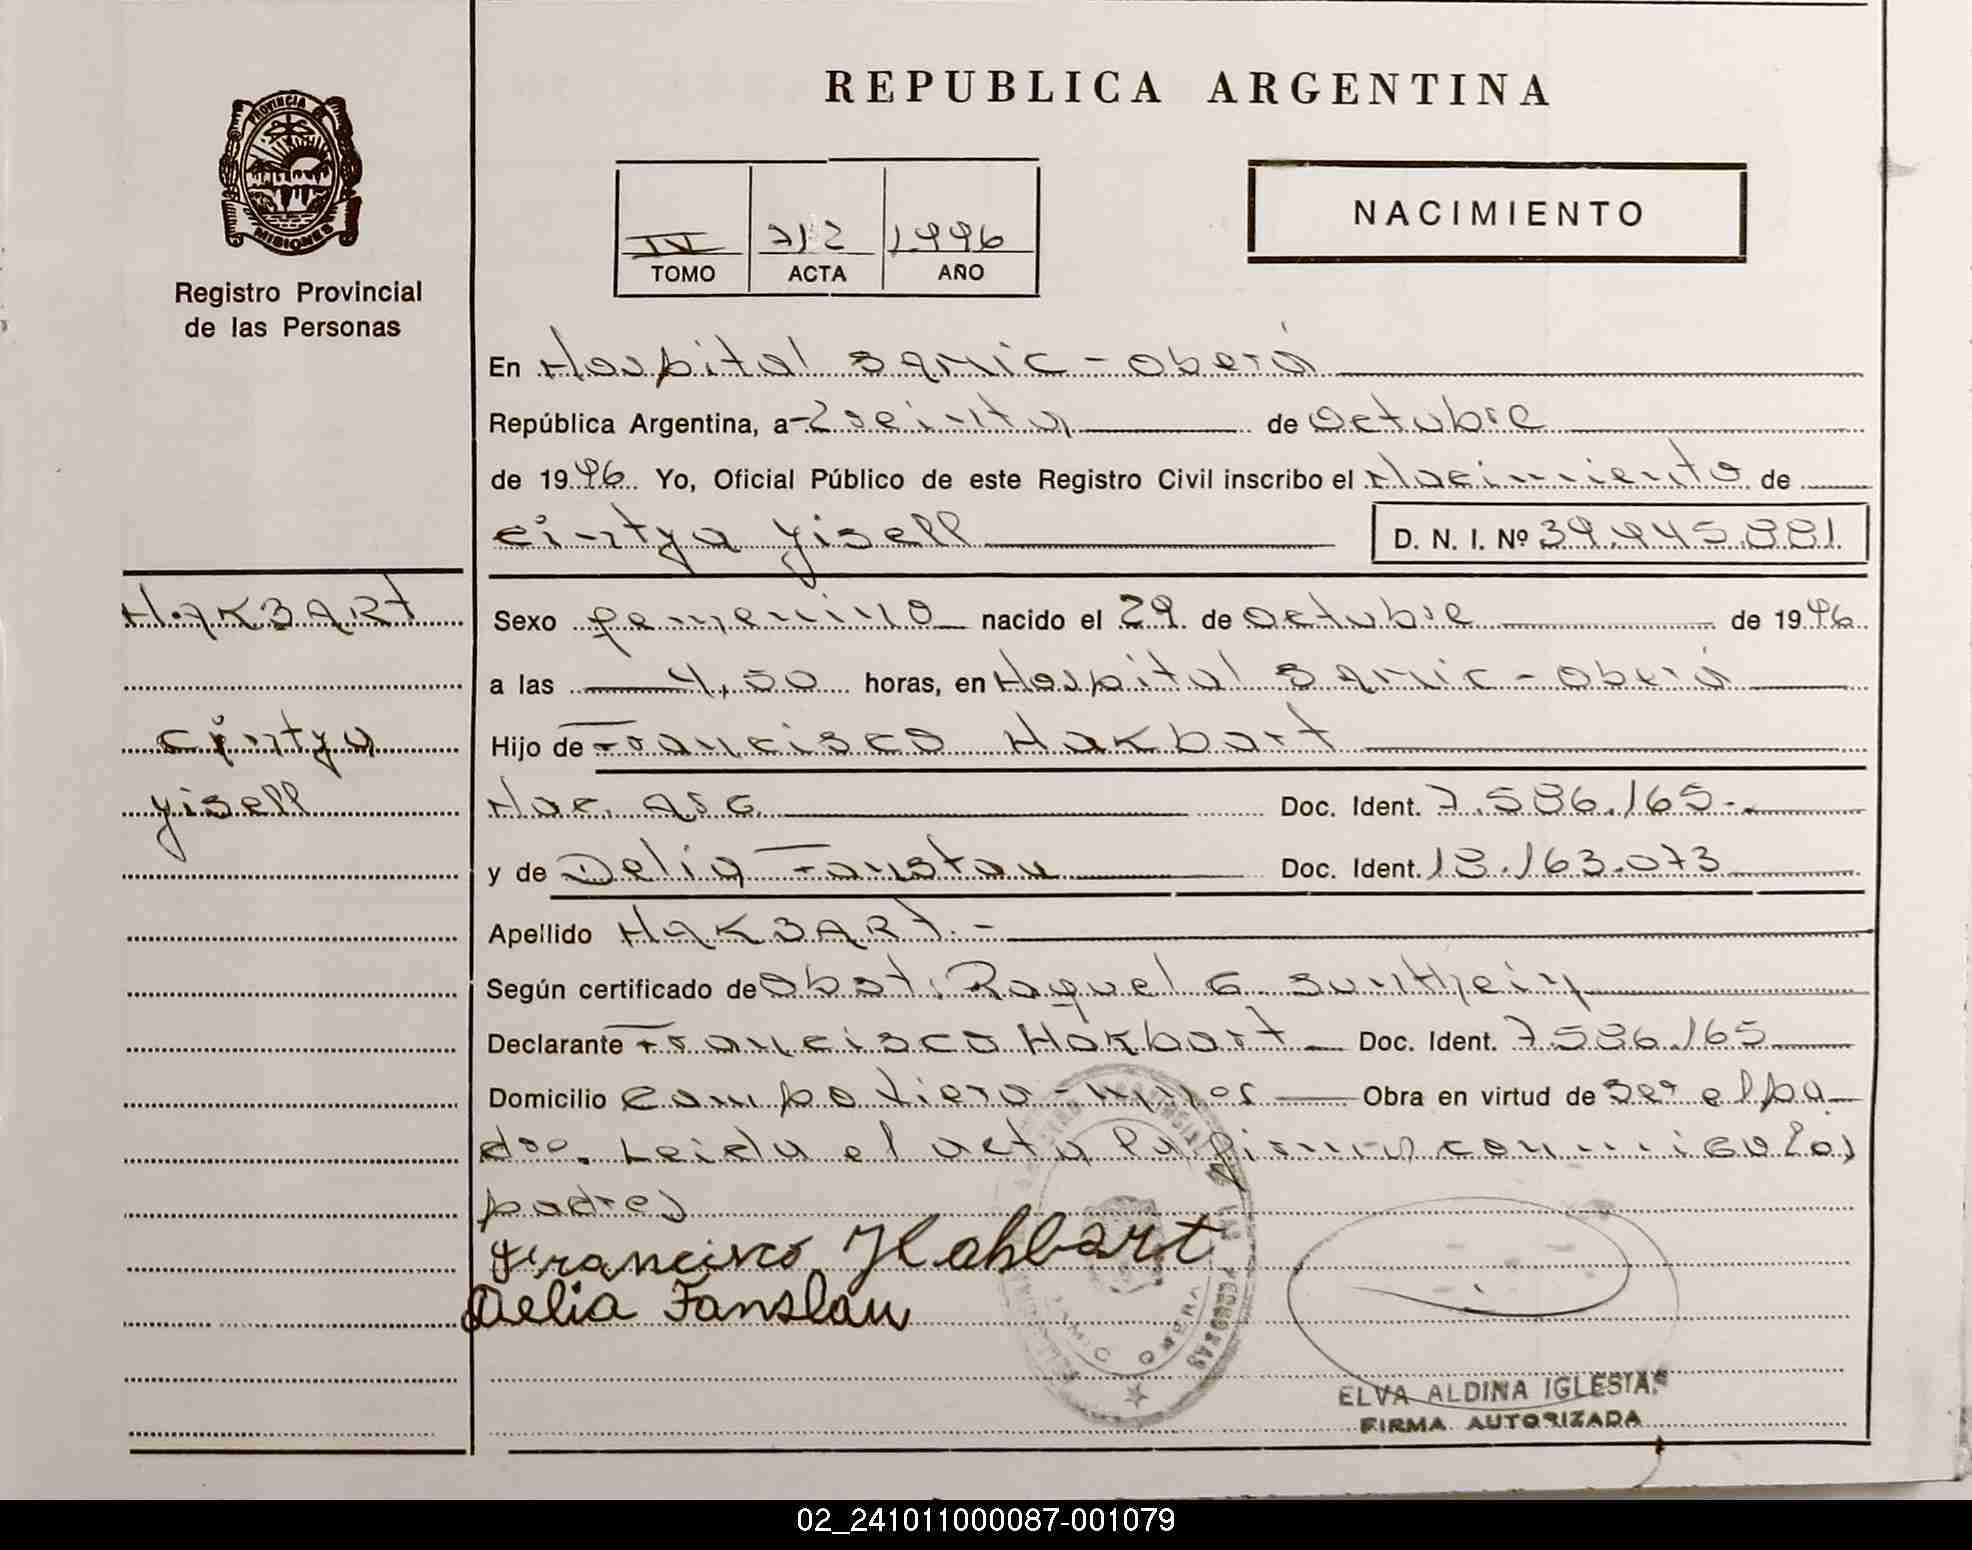 REPUBLICA ARGENTINA
PROVINCIA DE
MISIONES
Registro Provincial
de las Personas
IV 712 1996
TOMO ACTA AÑO
NACIMIENTO
En Hospital SAMIC - Oberá
República Argentina, a treinta de Octubre
de 1996. Yo, Oficial Público de este Registro Civil inscribo el Nacimiento de
Cintya Yisell D. N. I. Nº 39.945.881.
HAKBART
Cintya
Yisell
Sexo femenino nacido el 29 de Octubre de 1996
a las 4,50 horas, en Hospital SAMIC - Oberá
Hijo de Francisco Hakbart
Nac. ARG. Doc. Ident. 7.586.165.-
y de Delia Fanslau Doc. Ident. 18.163.073
Apellido HAKBART.-
Según certificado de Obst. Raquel G.
Declarante Francisco Hakbart Doc. Ident. 7586.165
Domicilio Campo Viera - Mnes Obra en virtud de ser el pa
dre. Leida el acta la firman conmigo los
padres
Francisco Hakbart
Delia Fanslau
ELVA ALDINA IGLESIAS
FIRMA AUTORIZADA
02_241011000087-001079